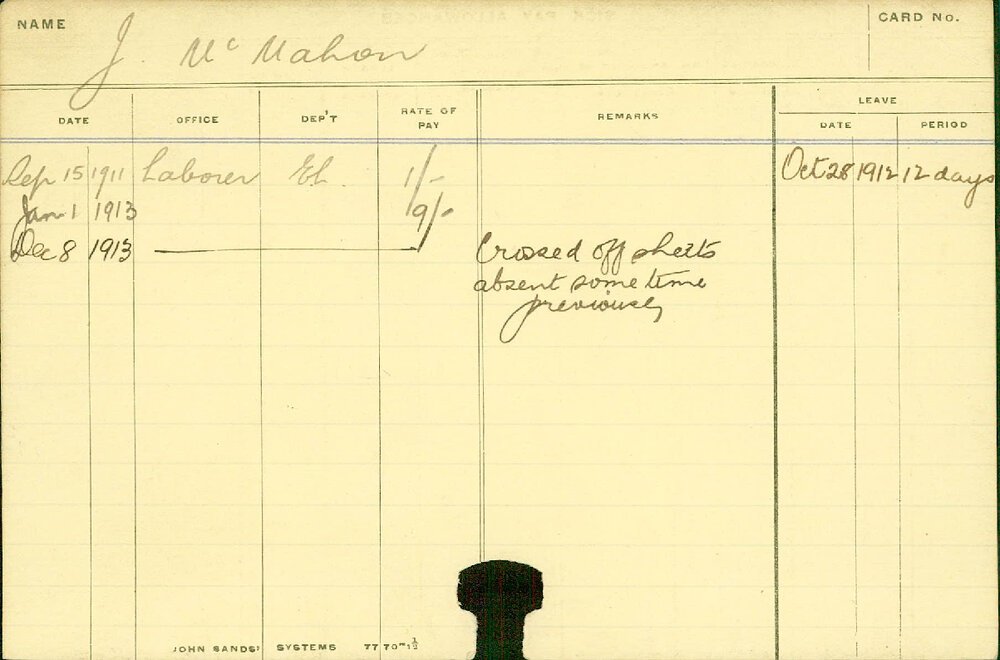 NAME J. McMahon CARD No.
LEAVE
DATE OFFICE DEP'T RATE OF PAY REMARKS DATE PERIOD
Sep 15 1911 Laborer El. 1/- Oct 28 1912 12 days
Jan 1 1913 9/-
Dec 8 1913 Crossed off sheets
absent some time
previously
JOHN SANDS' SYSTEMS 77 70